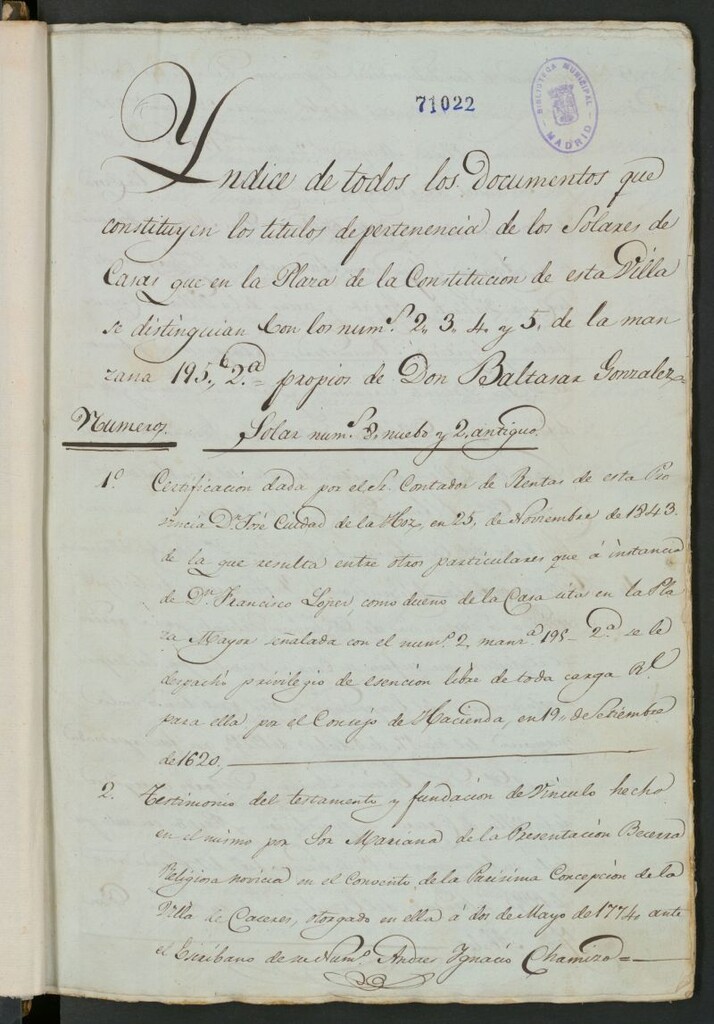 71022
BIBLIOTECA MUNICIPAL
MADRID
Yndice de todos los Documentos que
constituyen los titulos de pertenencia de los Solares de
Casas que en la Plaza de la Constitucion de esta Villa
se distinguian con los num.s 2, 3, 4, y 5, de la man
zana 195, 2.a propios de Don Baltasar Gonzalez,=
Numeros. Solar num.s 3, nuebo y 2, antiguo.
1.o Certificacion dada por el Sr. Contador de Rentas de esta Pro
vincia D.n José Ciudad de la Hoz, en 25, de Noviembre de 1843.
de la que resulta entre otros particulares que á instancia
de D.n Francisco Lopez, como dueño de la Casa sita en la Pla
za Mayor señalada con el num.o 2, manz.a 195 - 2.a se le
despachó privilegio de esencion libre de toda carga R.l
para ella por el Consejo de Hacienda, en 19, de Setiembre
de 1620,
2. Testimonio del testamento y fundacion de Vinculo hecho
en el mismo por Sor Mariana de la Presentacion Becerra
Religiosa novicia en el Convento de la Purisima Concepcion de la
Villa de Caceres, otorgado en ella á dos de Mayo de 1774, ante
el Escribano de su Num.o Andres Ygnacio Chamizo =